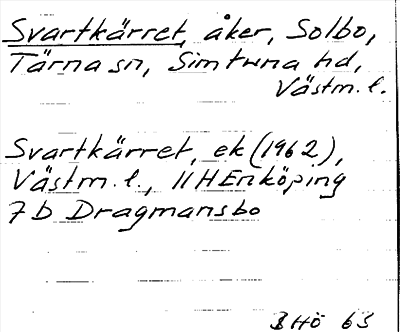 Svartkärret, åker, Solbo,
Tärna sn, Simtuna hd,
Västm. l.
Svartkärret, ek (1962),
Västm. l., 11H Enköping
7b Dragmansbo
BHö 63